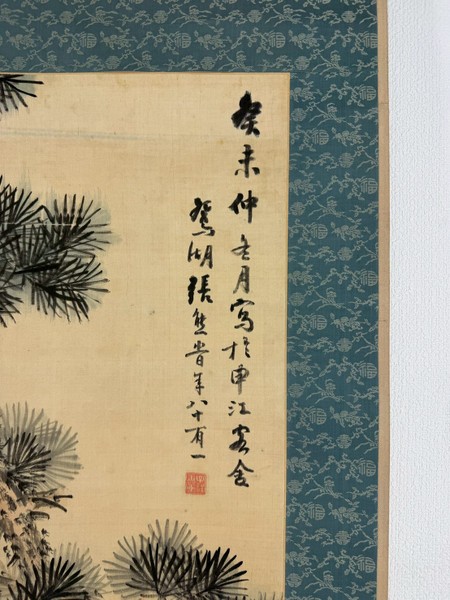 癸未仲冬月寫於申江客舍
鴛湖張熊當年八十有一